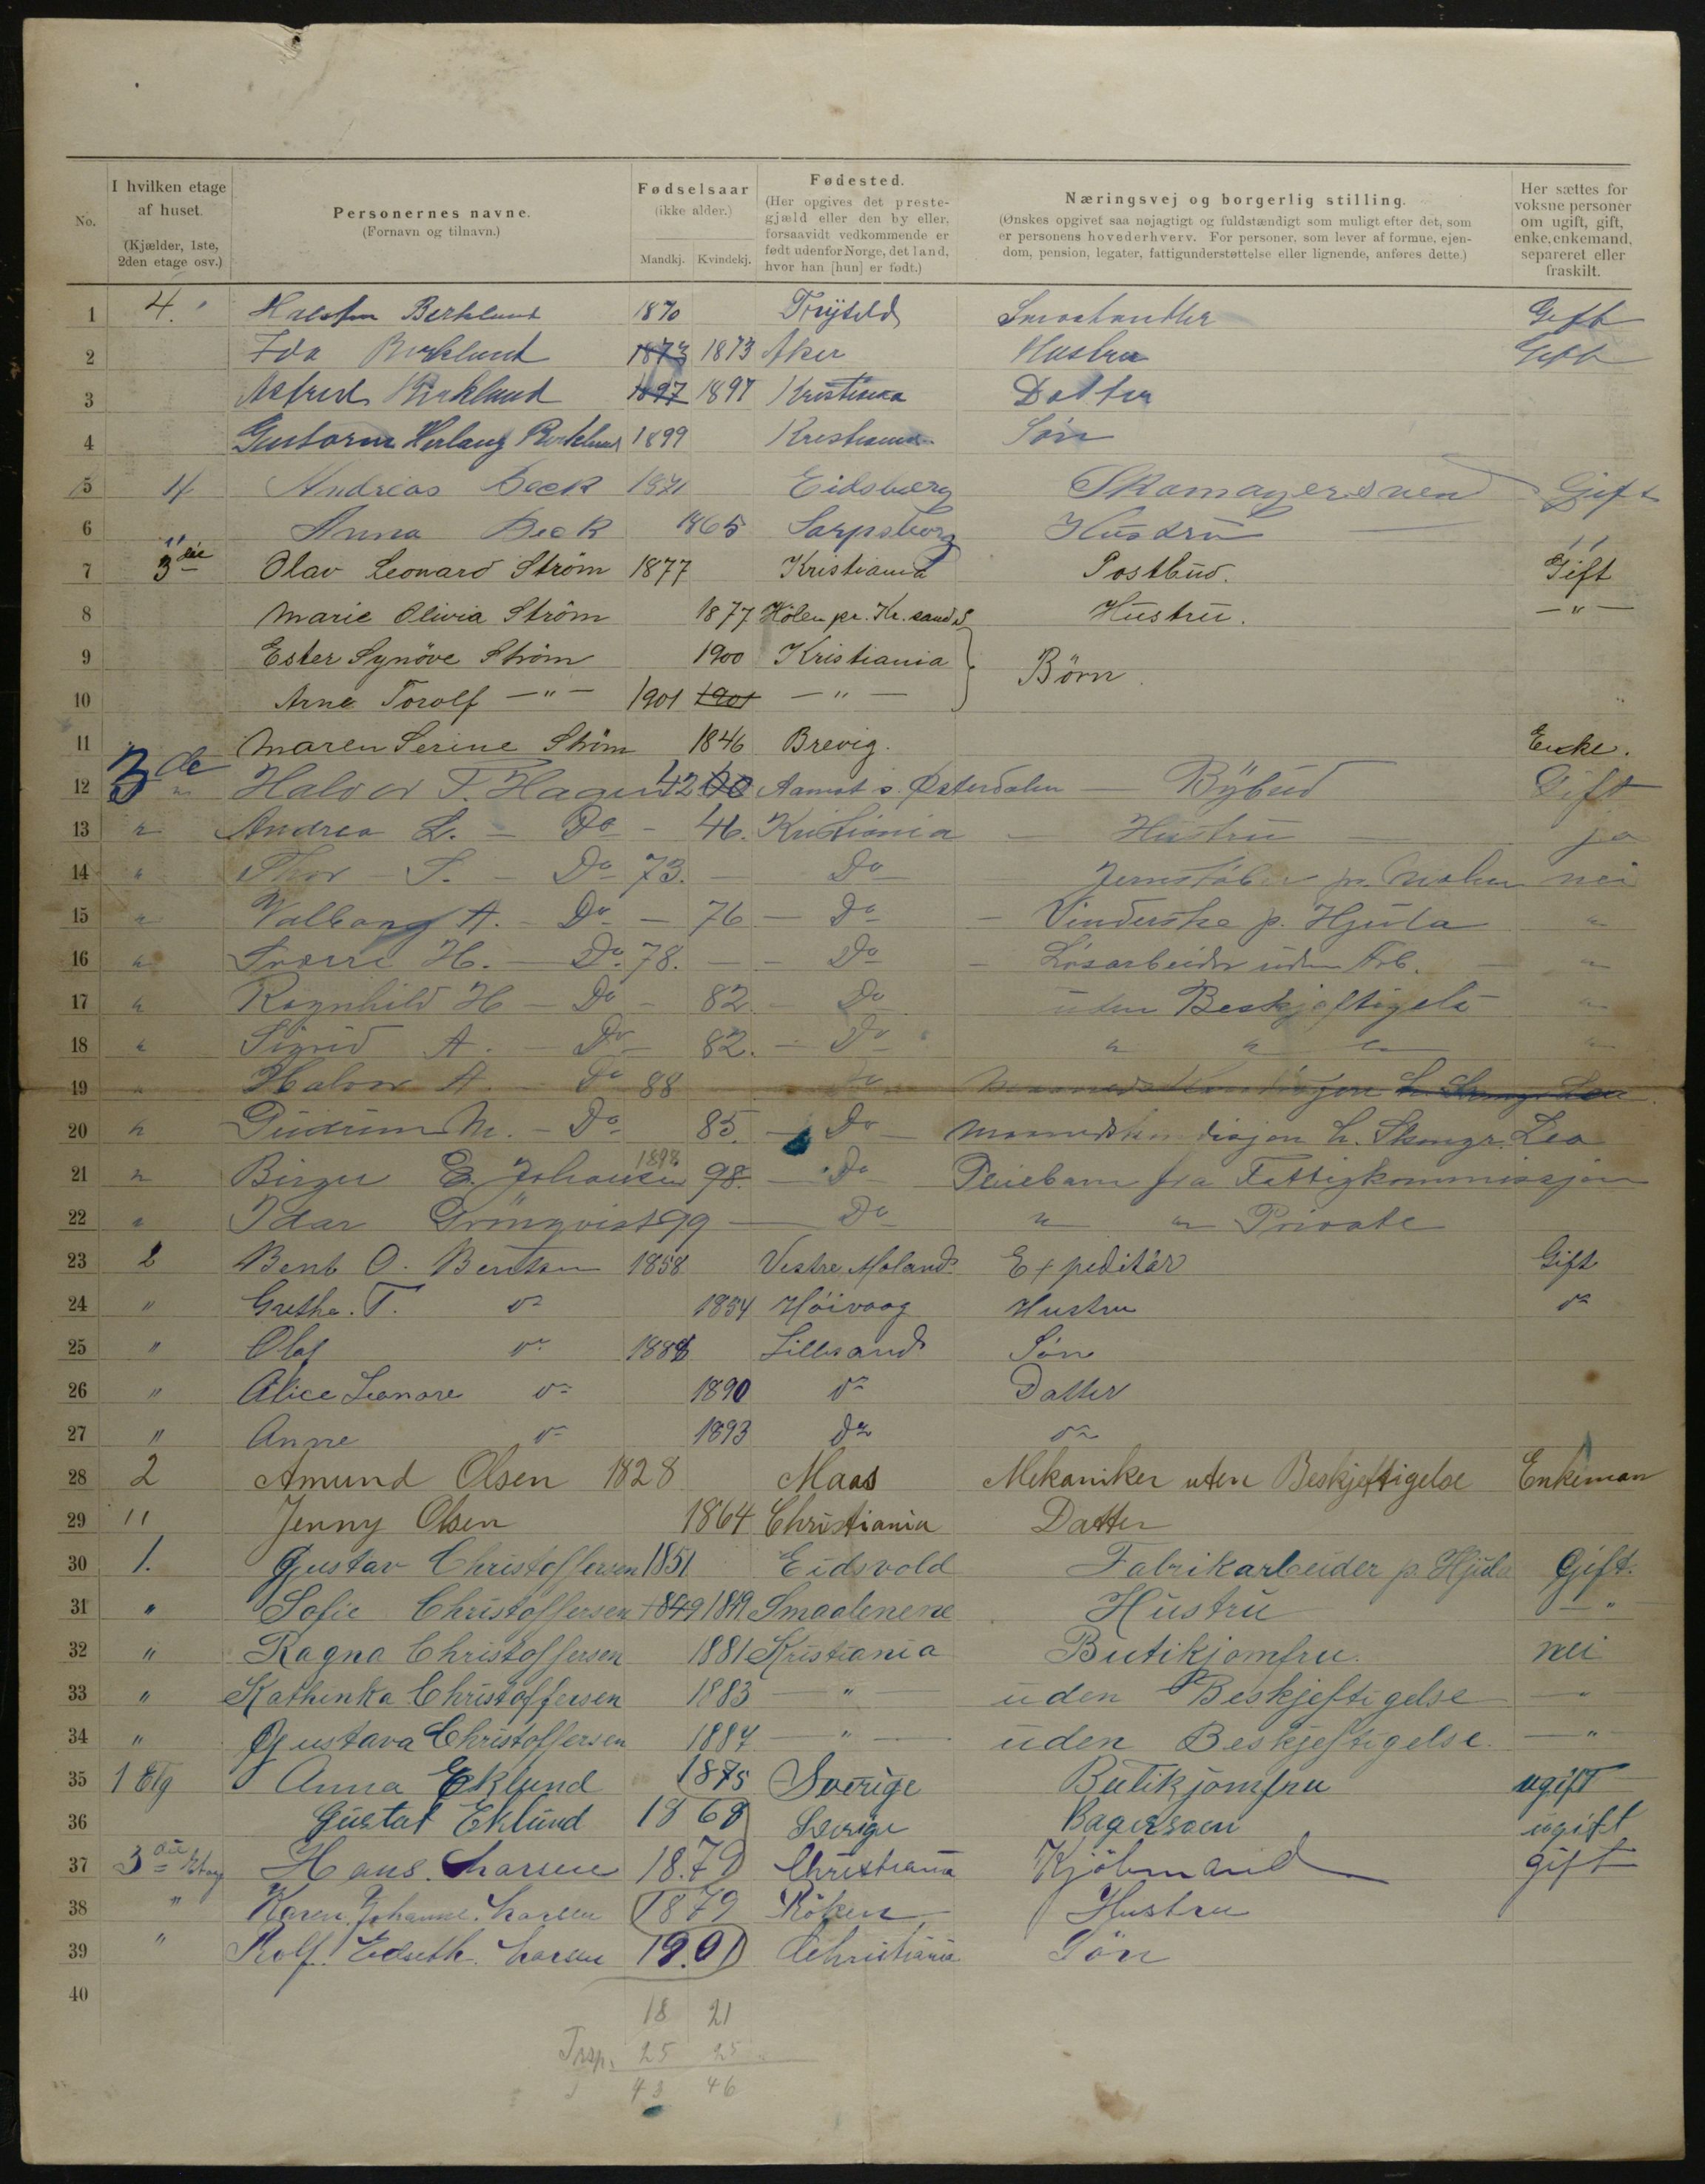 No.
I hvilken etage af huset.
(Kjælder, 1ste, 2den etage osv.)
Personernes navne.
(Fornavn og tilnavn.)
Fødselsaar
(ikke alder.)
Mandkj. Kvindekj.
Fødested.
(Her opgives det prestegjæld eller den by eller, forsaavidt vedkommende er født udenfor Norge, det land, hvor han [hun] er født.)
Næringsvej og borgerlig stilling.
(Ønskes opgivet saa nøjagtigt og fuldstændigt som muligt efter det, som er personens hovederhverv. For personer, som lever af formue, ejendom, pension, legater, fattigunderstøttelse eller lignende, anføres dette.)
Her sættes for voksne personer om ugift, gift, enke, enkemand, separeret eller fraskilt.
1 4. Berklund 1870 Gift
2 Ida Berklund 1873 1873 Aker Hustru Gift
3 Berklund 1897 1897 Kristiania Datter
4 Berklund 1899 Kristiania Søn
5 4 Andreas Beck 1871 Eidsberg Skomagersvend Gift
6 " Anna Beck 1865 Sarpsborg Husdru "
7 3die Olav Leonard Ström 1877 Kristiania Postbud. Gift
8 Marie Olivia Ström 1877 Hölen pr. Kr.sand S Hustru. — " —
9 Ester Synöve Ström 1900 Kristiania Börn.
10 Arne Torolf — " — 1901 1901 — " —
11 Maren Serine Ström 1846 Brevig. Enke.
12 3de Halvor T. Hagen 42 Aamot i Østerdalen — Bybud Gift
13 " Andrea L. — Do — 46. Kristiania — Hustru ja
14 " Thor S. — Do 73. — Do nei
15 " Valborg A. — Do — 76 — Do — Vinderske p. Hjula "
16 " Sverre H. — Do 78. — Do — Løsarbeider uden Arb. "
17 " Ragnhild H — Do — 82 — Do uden Beskjæftigelse "
18 " Sigrid A. — Do 82. — Do " " " "
19 " Halvor A. — Do 88 Do
20 " Gudrun M. — Do 85. — Do —
21 " Birger E. Johansen 1898 98. — Do — Pleiebarn fra Fattigkommissjon
22 " Idar Grönqvist 99 — Do " " Private
23 2 Bent O. Bentsen 1858 Vestre Moland Expeditör Gift
24 " Grethe. T. do 1854 Höivaag Hustru do
25 " Olaf do 1888 Lillesand Søn
26 " Alice Leonore do 1890 do Datter
27 " Anne do 1893 do do
28 2 Amund Olsen 1828 Maas Mekaniker uten Beskjeftigelse Enkeman
29 " Jenny Olsen 1864 Christiania Datter
30 1. Gustav Christoffersen 1851 Eidsvold Fabrikarbeider p. Hjula Gift.
31 " Sofie Christoffersen 1849 1849 Smaalenene Hustru — "
32 " Ragna Christoffersen 1881 Kristiania Butikjomfru. nei
33 " Kathinka Christoffersen 1883 — " — uden Beskjeftigelse — "
34 " Gustava Christoffersen 1884 — " — uden Beskjeftigelse. — "
35 1 Etg Anna Eklund 1875 Sverige Butikjomfru ugift
36 Gustaf Eklund 1868 Sverige Bagersven ugift
37 3die Etag Hans. Larsen 18.79 Christiania Kjöbmand gift
38 " Karen. Johanne. Larsen 1879 Röken Hustru
39 " Rolf. Edseth. Larsen 19.01 Christiania Sön
40
18 21
Trsp. 25 25
43 46